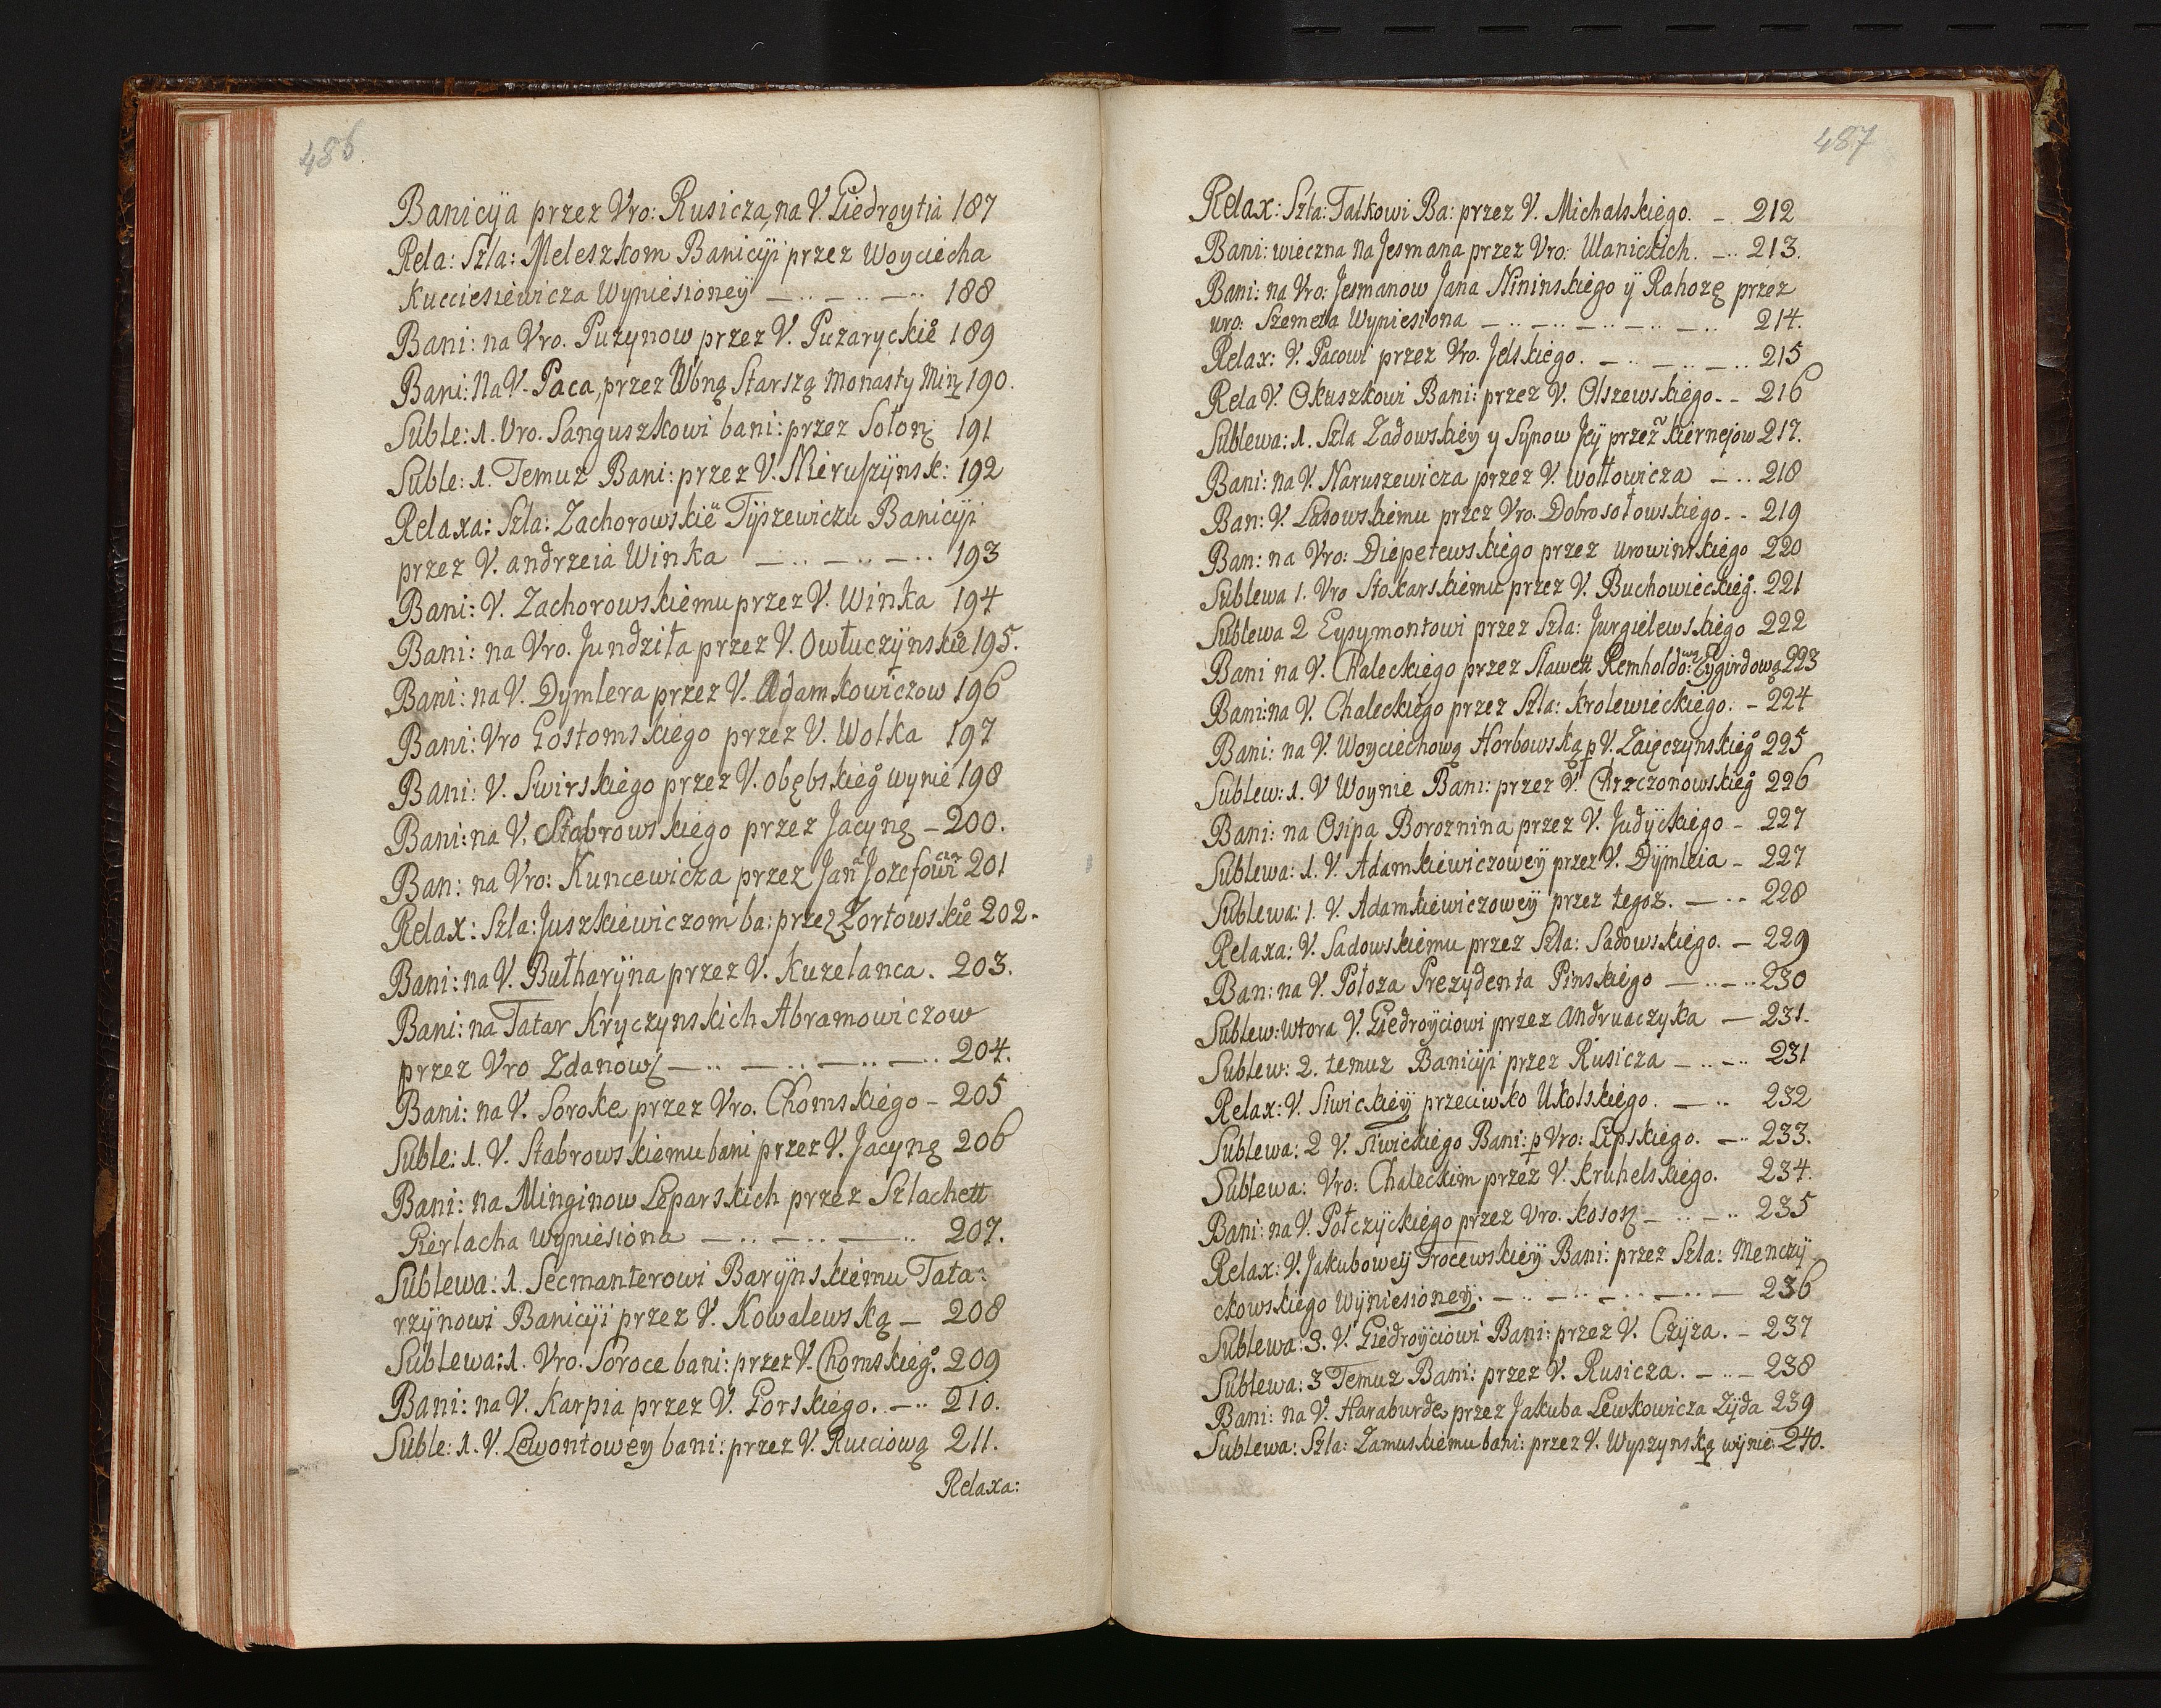 486.
Banicÿa przez Vro: Rusicza, na V. Giedroytia 187
Rela: Szla: Meleszkom Banicÿi przez Woyciecha
Kucciesiewicza Wyniesioneÿ — .. — .. — .. 188
Bani: na Vro. Puzynow przez V. Puzaryckie° 189
Bani: Na V. Paca, przez Wbną Starszą Monasty Min: 190.
Suble: 1. Vro. Sanguszkowi bani: przez Sołonę 191
Suble: 1. Temuz Bani: przez V. Mieruszÿnsk: 192
Relaxa: Szla: Zachorowskie Tÿszewiczu Banicÿi
przez V. andrzeia Winka — .. — .. — .. 193
Bani: V. Zachorowskiemu przez V. Winka 194
Bani: na Vro. Jundziła przez V. Owłuczÿnskie° 195.
Bani: na V. Dymlera przez V. Adamkowiczow 196
Bani: Vro Gostomskiego przez V. Wolka 197
Bani: V. Swirskiego przez V. Obębskieg° wynie 198
Bani: na V. Stabrowskiego przez Jacynę – 200.
Ban: na Vro: Kuncewicza przez Jana Jozefowicza 201
Relax: Szla: Juszkiewiczom ba: przez Zortowskie° 202.
Bani: na V. Bułharÿna przez V. Kuzelanca. 203.
Bani: na Tatar Kryczynskich Abramowiczow
przez Vro Zdanow — .. — .. — .. — .. 204.
Bani: na V. Soroke przez Vro. Chomskiego – 205
Suble: 1. V. Stabrowskiemu bani przez V. Jacynę 206
Bani: na Minginow Leparskich przez Szlachett
Gierlacha wyniesiona — .. — .. — .. 207.
Sublewa: 1. Secmanterowi Barÿnskiemu Tata:
rzÿnowi Banicÿi przez V. Kowalewską — 208
Sublewa: 1. Vro. Soroce bani: przez V. Chomskieg° 209
Bani: na V. Karpia przez V. Gorskiego. — .. 210.
Suble: 1. V. Lewontowey bani: przez V. Ruiciową 211.
Relaxa:
487
Relax: Szła: Talkowi Ba: przez V. Michalskiego. – 212
Bani: wieczna na Jesmana przez Vro: Ulanickich. — .. 213.
Bani: na Vro: Jesmanow Jana Nininskiego ÿ Rahozę przez
uro: Szemeta Wyniesiona — .. — .. — .. — .. — .. 214.
Relax: V. Pacowi przez Vro. Jelskiego. — .. — .. — .. 215
Rela V. Okuszkowi Bani: przez V. Olszewskiego – – 216
Sublewa: 1. Szla Zadowskiey y Synow Jeÿ przez kiernejow 217.
Bani: na V. Naruszewicza przez V. wołłowicza — .. 218
Ban: V. Lasowskiemu przez Vro. Dobrosołowskiego – – 219
Ban: na Vro: Diepetewskiego przez urowinskiego 220
Sublewa 1. Vro Stokarskiemu przez V. Buchowieckieg°. 221
Sublewa 2 Eysymontowi przez Szla: Jurgielewskiego 222
Bani na V. Chaleckiego przez Sławett Remholdo:wą Zygirdową 223
Bani: na V. Chaleckiego przez Szla: Krolewieckiego. – 224
Bani: na V. Woyciechową Horbowską p V. Zaięczynskieg° 225
Sublew: 1. V Woynie Bani: przez V. Chrzczonowskieg° 226
Bani: na Osipa Boroznina przez V. Judÿckiego – 227
Sublewa: 1. V. Adamkiewiczoweÿ przez V. Dÿmlria – 227
Sublewa: 1. V. Adamkiewiczoweÿ przez tegoz. — .. – 228
Relaxa: V. Sadowskiemu przez Szla: Sadowskiego. – 229
Ban: na V. Połoza Prezÿdenta Pinskiego — .. — .. 230
Sublew: wtora V. Giedroÿciowi przez andruaczyka — 231.
Sublew: 2. temuz Banicÿi przez Rusicza — .. — .. 231
Relax: V. Siwickieÿ przeciwko Ukolskiego. — .. 232
Sublewa: 2 V. Siwickiego Bani: p Vro: Lipskiego. — .. 233.
Sublewa: Vro: Chaleckim przez V. Kruhelskiego. 234.
Bani: na V. Połczÿckiego przez Vro. kosoz — .. — .. 235
Relax: V. Jakuboweÿ Trocewskieÿ Bani: przez Szla: Menczÿ
ckowskiego Wÿniesioneÿ. — .. — .. — .. — .. — 236
Sublewa: 3. V. Giedroÿciowi Bani: przez V. Czÿza. – 237
Sublewa: 3 Temuz Bani: przez V. Rusicza. — .. — 238
Bani: na V. Haraburde przez Jakuba Lewkowicza Zÿda 239
Sublewa: Szla: Zamuskiemu bani: przez V. Wyszynską wÿnie: 240.